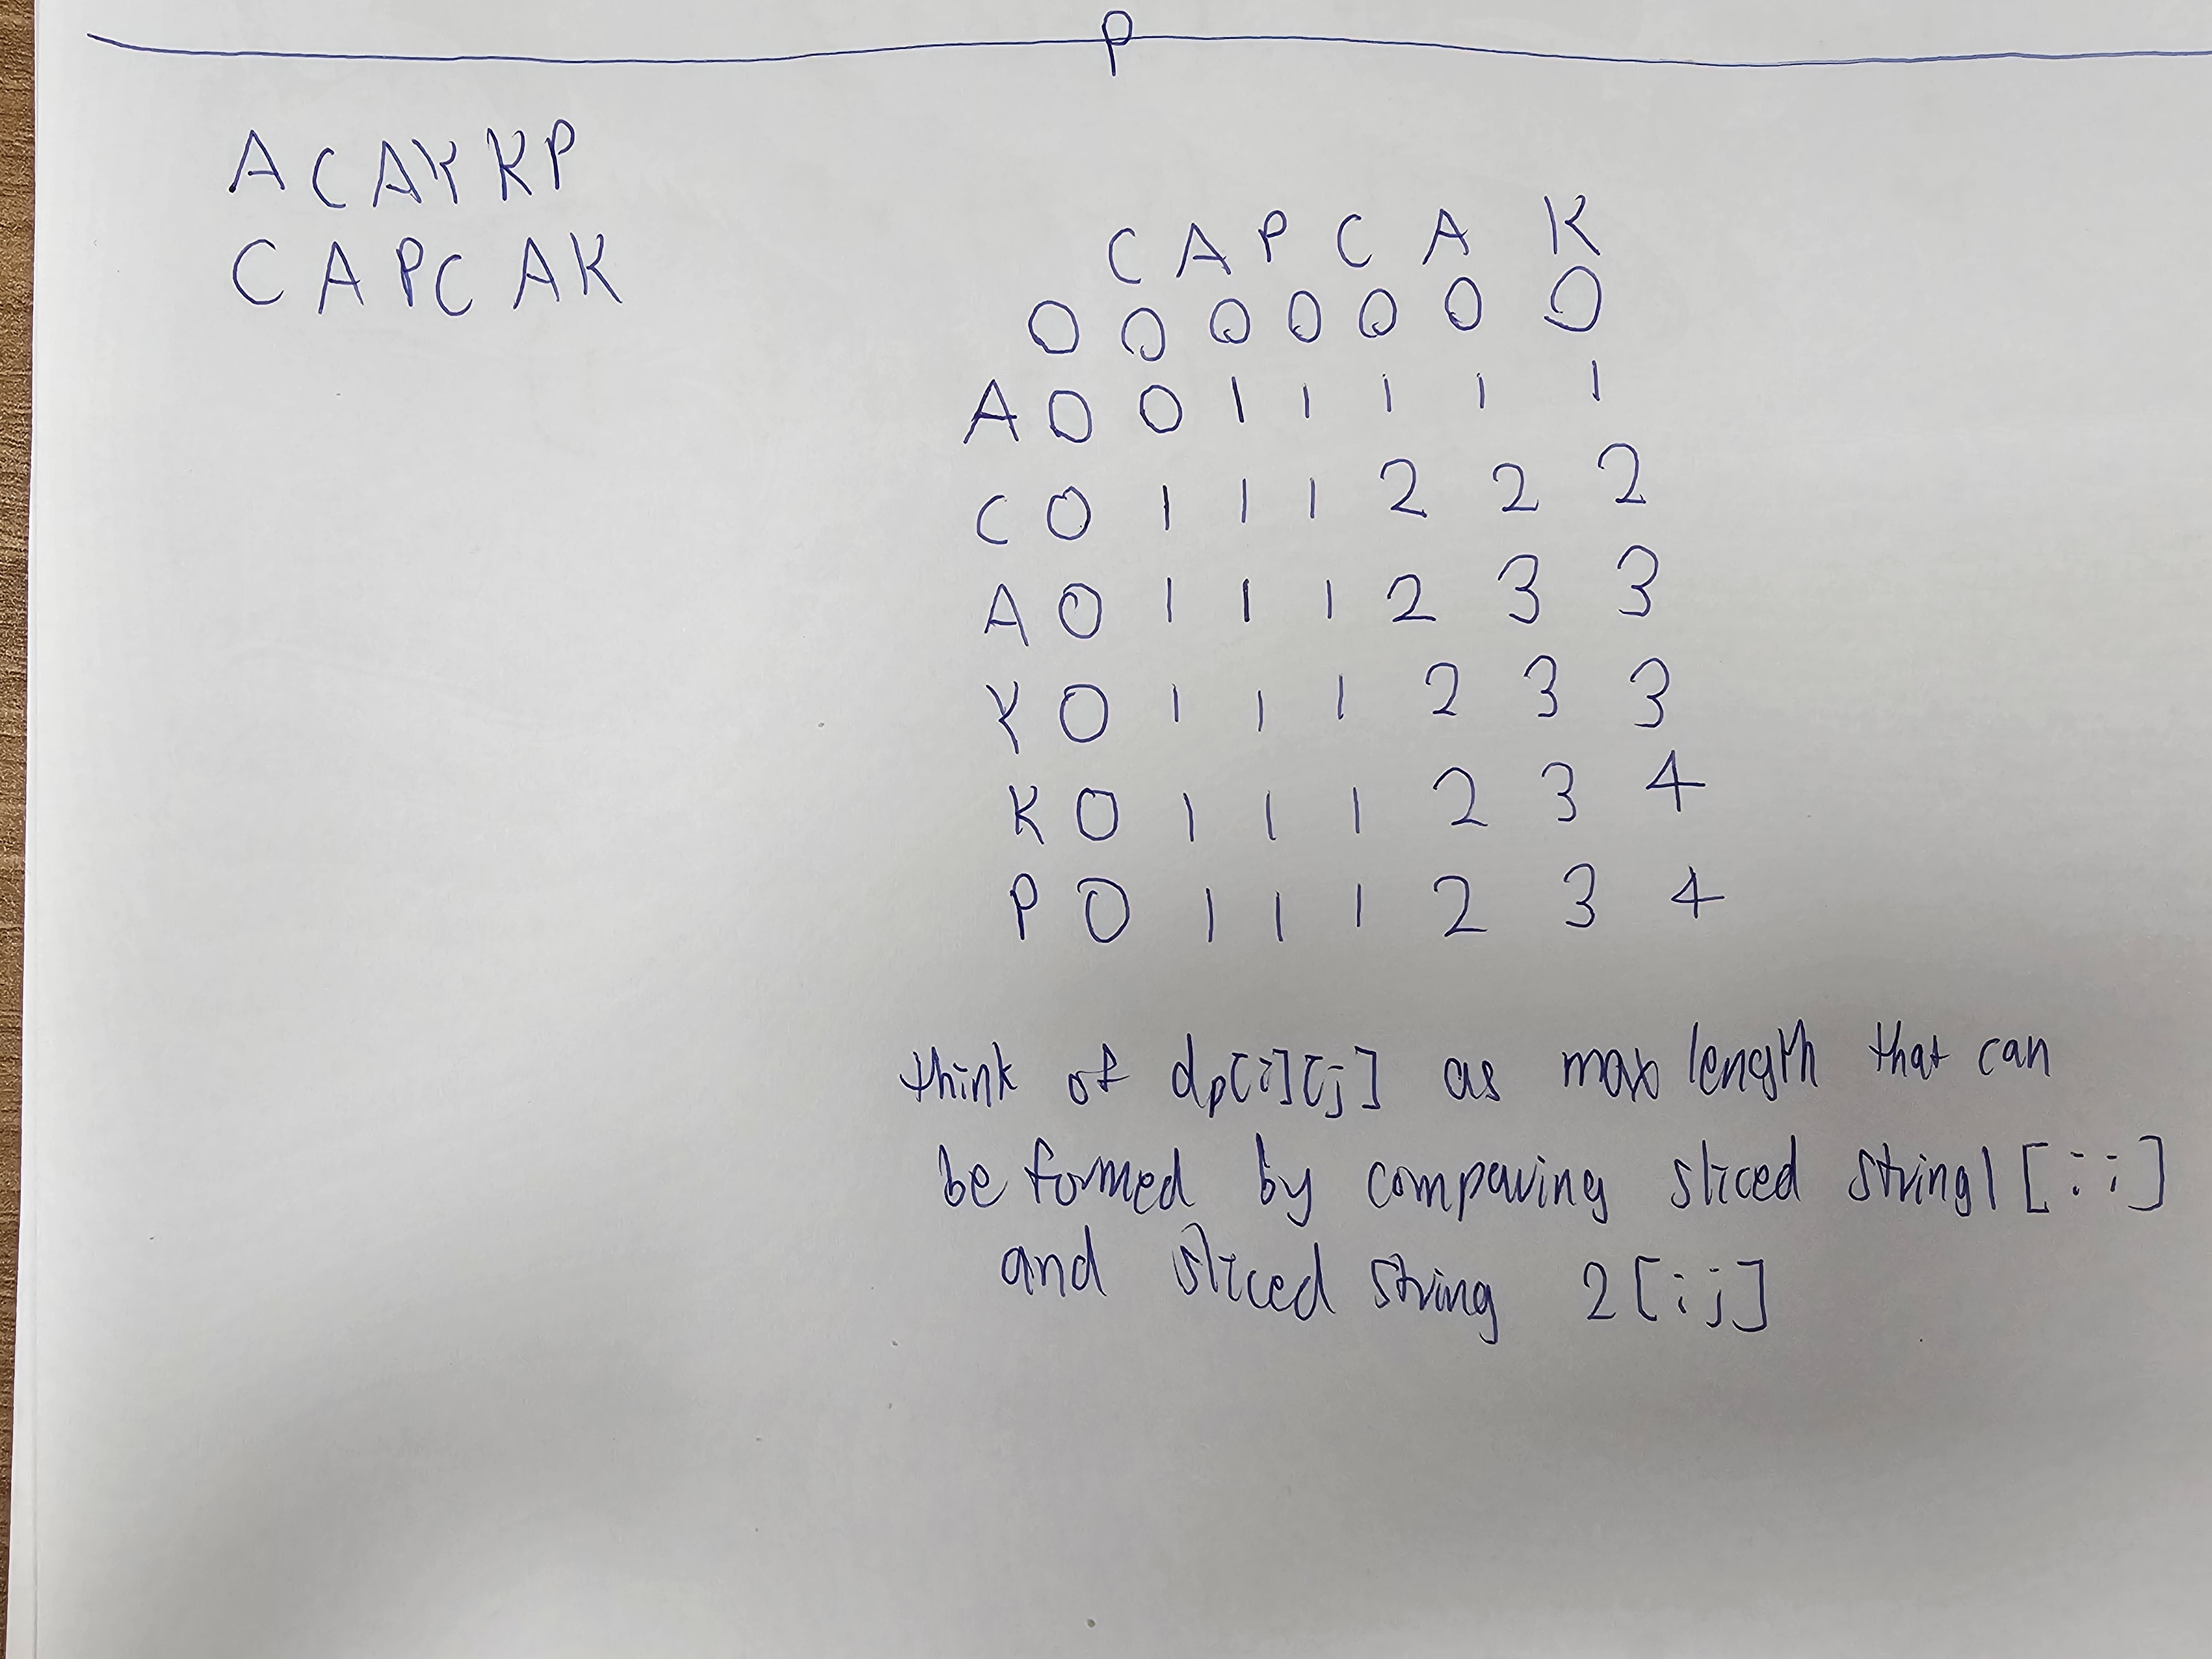 P
ACAYKP
CAPCAK
C A P C A K
0 0 0 0 0 0 0
A 0 0 1 1 1 1 1
C 0 1 1 1 2 2 2
A 0 1 1 1 2 3 3
Y 0 1 1 1 2 3 3
K 0 1 1 1 2 3 4
P 0 1 1 1 2 3 4
think of dp[i][j] as max length that can
be formed by comparing sliced string1[:i]
and sliced string 2[:j]